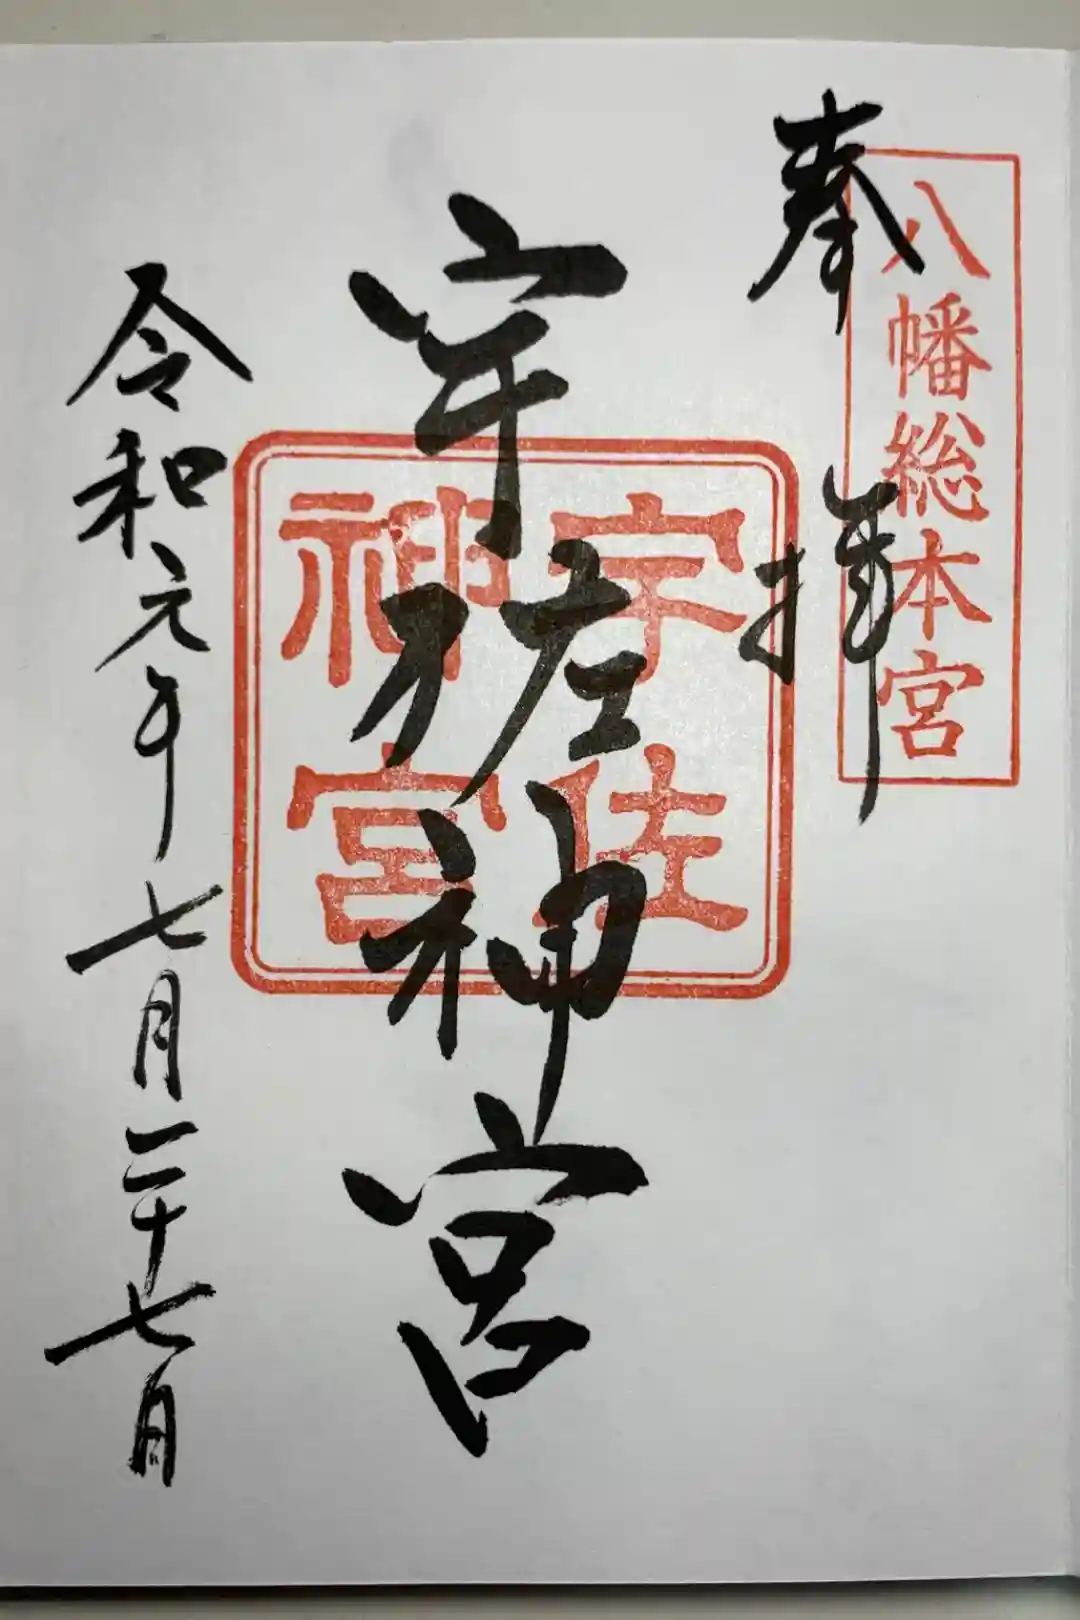 奉拝
八幡総本宮
宇佐神宮
宇佐
神宮
令和元年七月二十七日